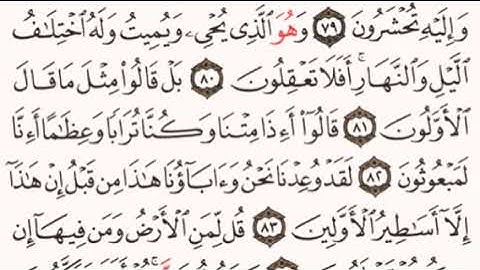 وَإِلَيْهِ تُحْشَرُونَ ٧٩ وَهُوَ ٱلَّذِى يُحْىِۦ وَيُمِيتُ وَلَهُ ٱخْتِلَٰفُ
ٱلَّيْلِ وَٱلنَّهَارِ ۚ أَفَلَا تَعْقِلُونَ ٨٠ بَلْ قَالُوا۟ مِثْلَ مَا قَالَ
ٱلْأَوَّلُونَ ٨١ قَالُوٓا۟ أَءِذَا مِتْنَا وَكُنَّا تُرَابًا وَعِظَٰمًا أَءِنَّا
لَمَبْعُوثُونَ ٨٢ لَقَدْ وُعِدْنَا نَحْنُ وَءَابَآؤُنَا هَٰذَا مِن قَبْلُ إِنْ هَٰذَآ
إِلَّآ أَسَٰطِيرُ ٱلْأَوَّلِينَ ٨٣ قُل لِّمَنِ ٱلْأَرْضُ وَمَن فِيهَآ إِن